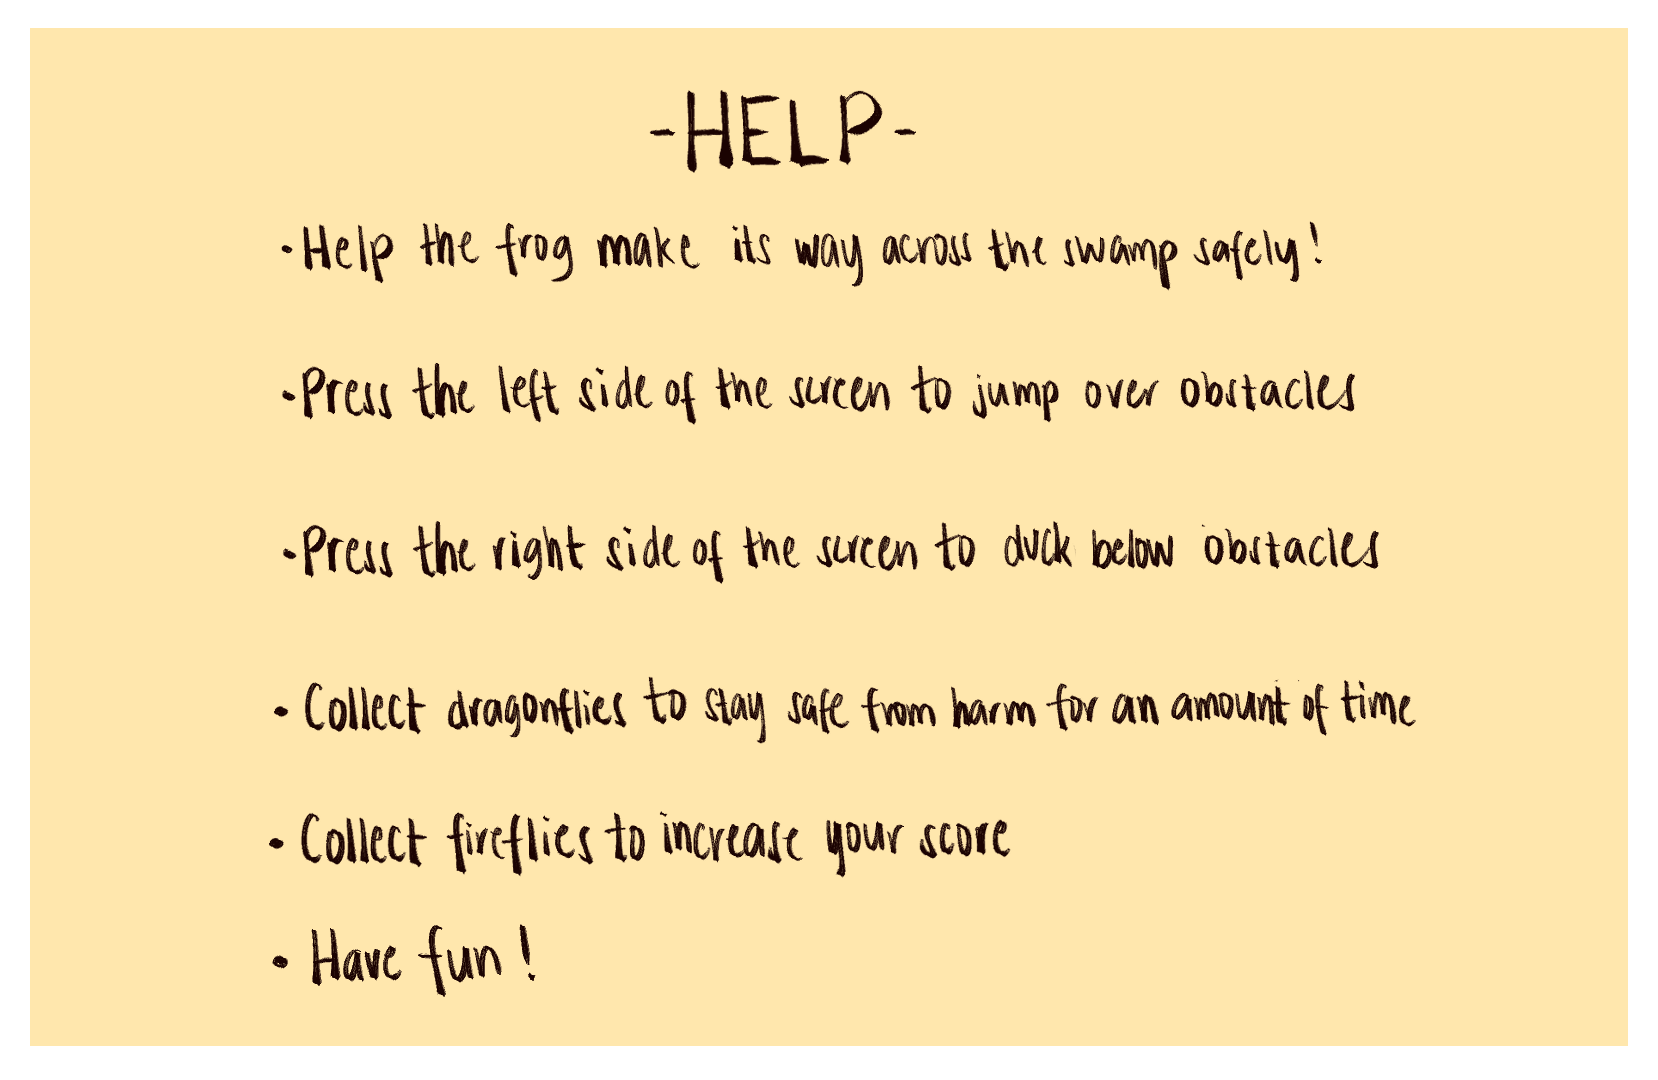 -HELP-
• Help the frog make its way across the swamp safely!
• Press the left side of the screen to jump over obstacles
• Press the right side of the screen to duck below obstacles
• Collect dragonflies to stay safe from harm for an amount of time
• Collect fireflies to increase your score
• Have fun!